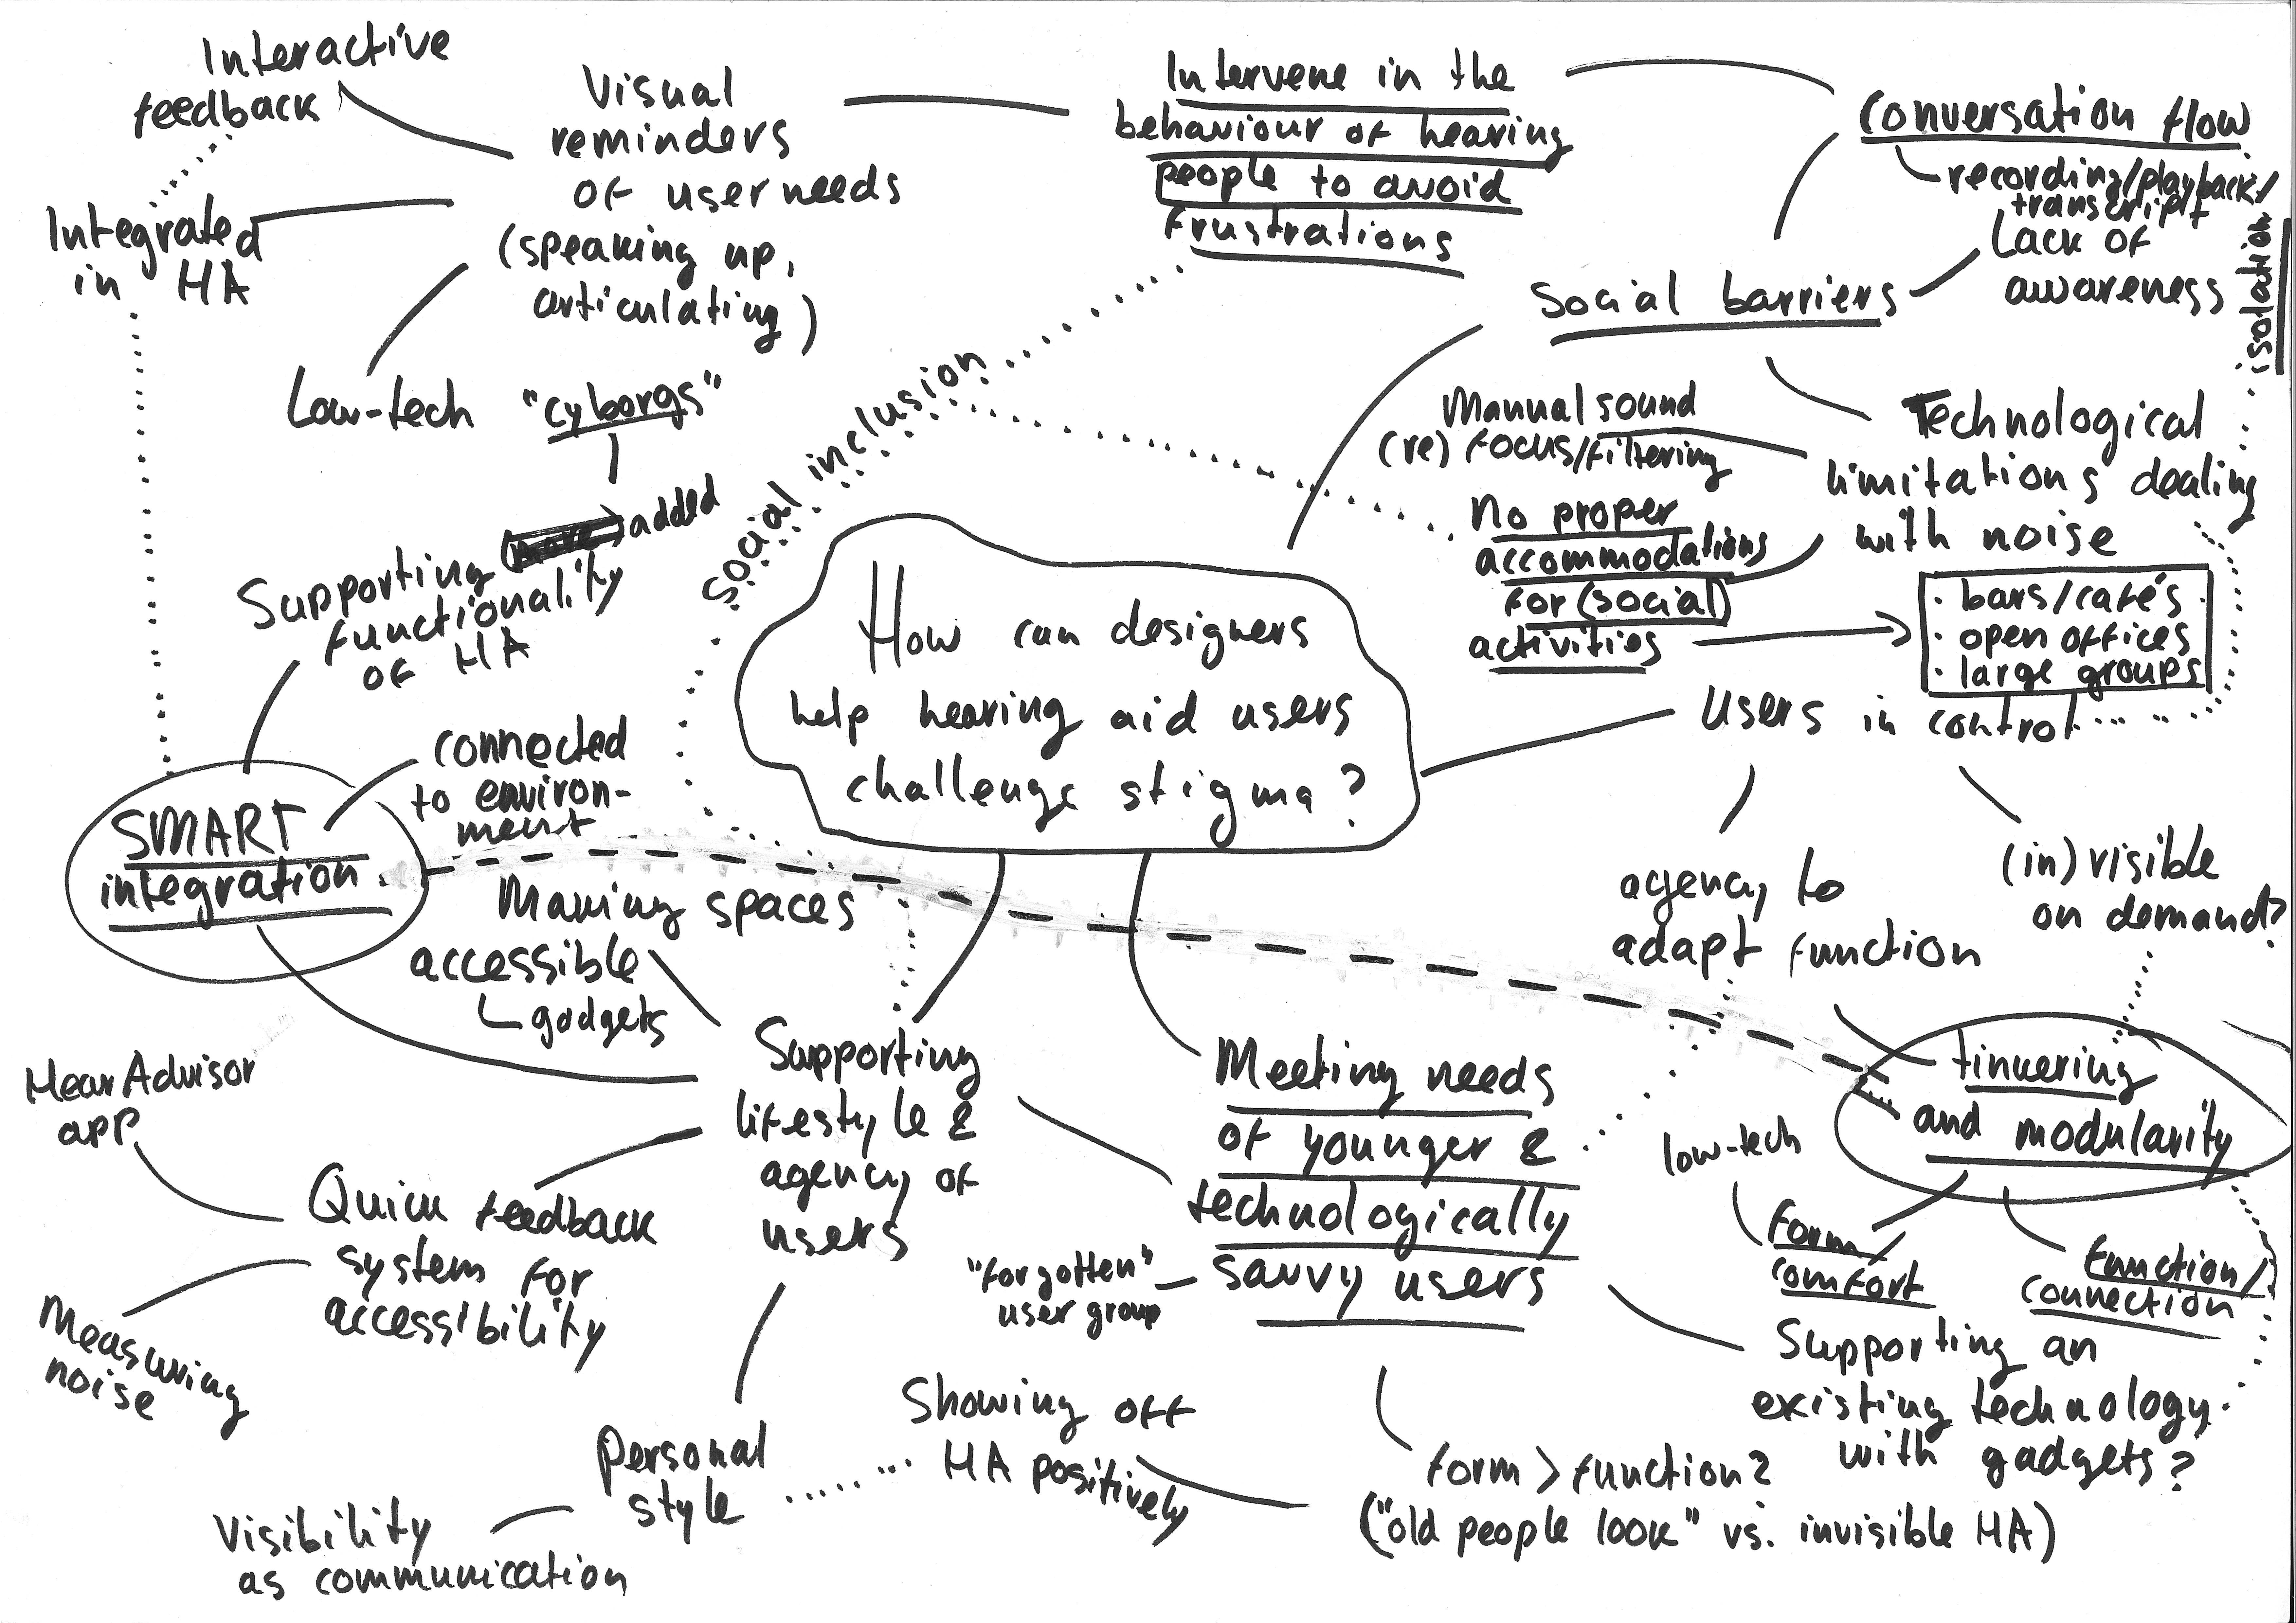 Interactive
feedback
Visual
reminders
of user needs
(speaking up,
articulating)
Integrated
in HA
Low-tech
"cyborgs"
Supporting added
functionality
of HA
Intervene in the
behaviour of hearing
people to avoid
frustrations
Conversation flow
recording/playback/
transcript
Lack of
awareness
isolation
Social barriers
social inclusion
Manual sound
(re) focus/filtering
No proper
accommodations
for (social)
activities
Technological
limitations dealing
with noise
· bars/cafés
· open offices
· large groups
How can designers
help hearing aid users
challenge stigma?
Users in control
agency to
adapt function
(in)visible
on demand?
connected
to environ-
ment
SMART
integration
Making spaces
accessible
gadgets
Supporting
lifestyle &
agency of
users
Meeting needs
of younger &
technologically
savvy users
"forgotten"
user group
tinkering
and modularity
low-tech
form/
comfort
function/
connection
HearAdvisor
app
Quick feedback
system for
accessibility
Measuring
noise
Supporting an
existing technology
with gadgets?
Personal
style
Showing off
HA positively
form > function?
("old people look" vs. invisible HA)
Visibility
as communication